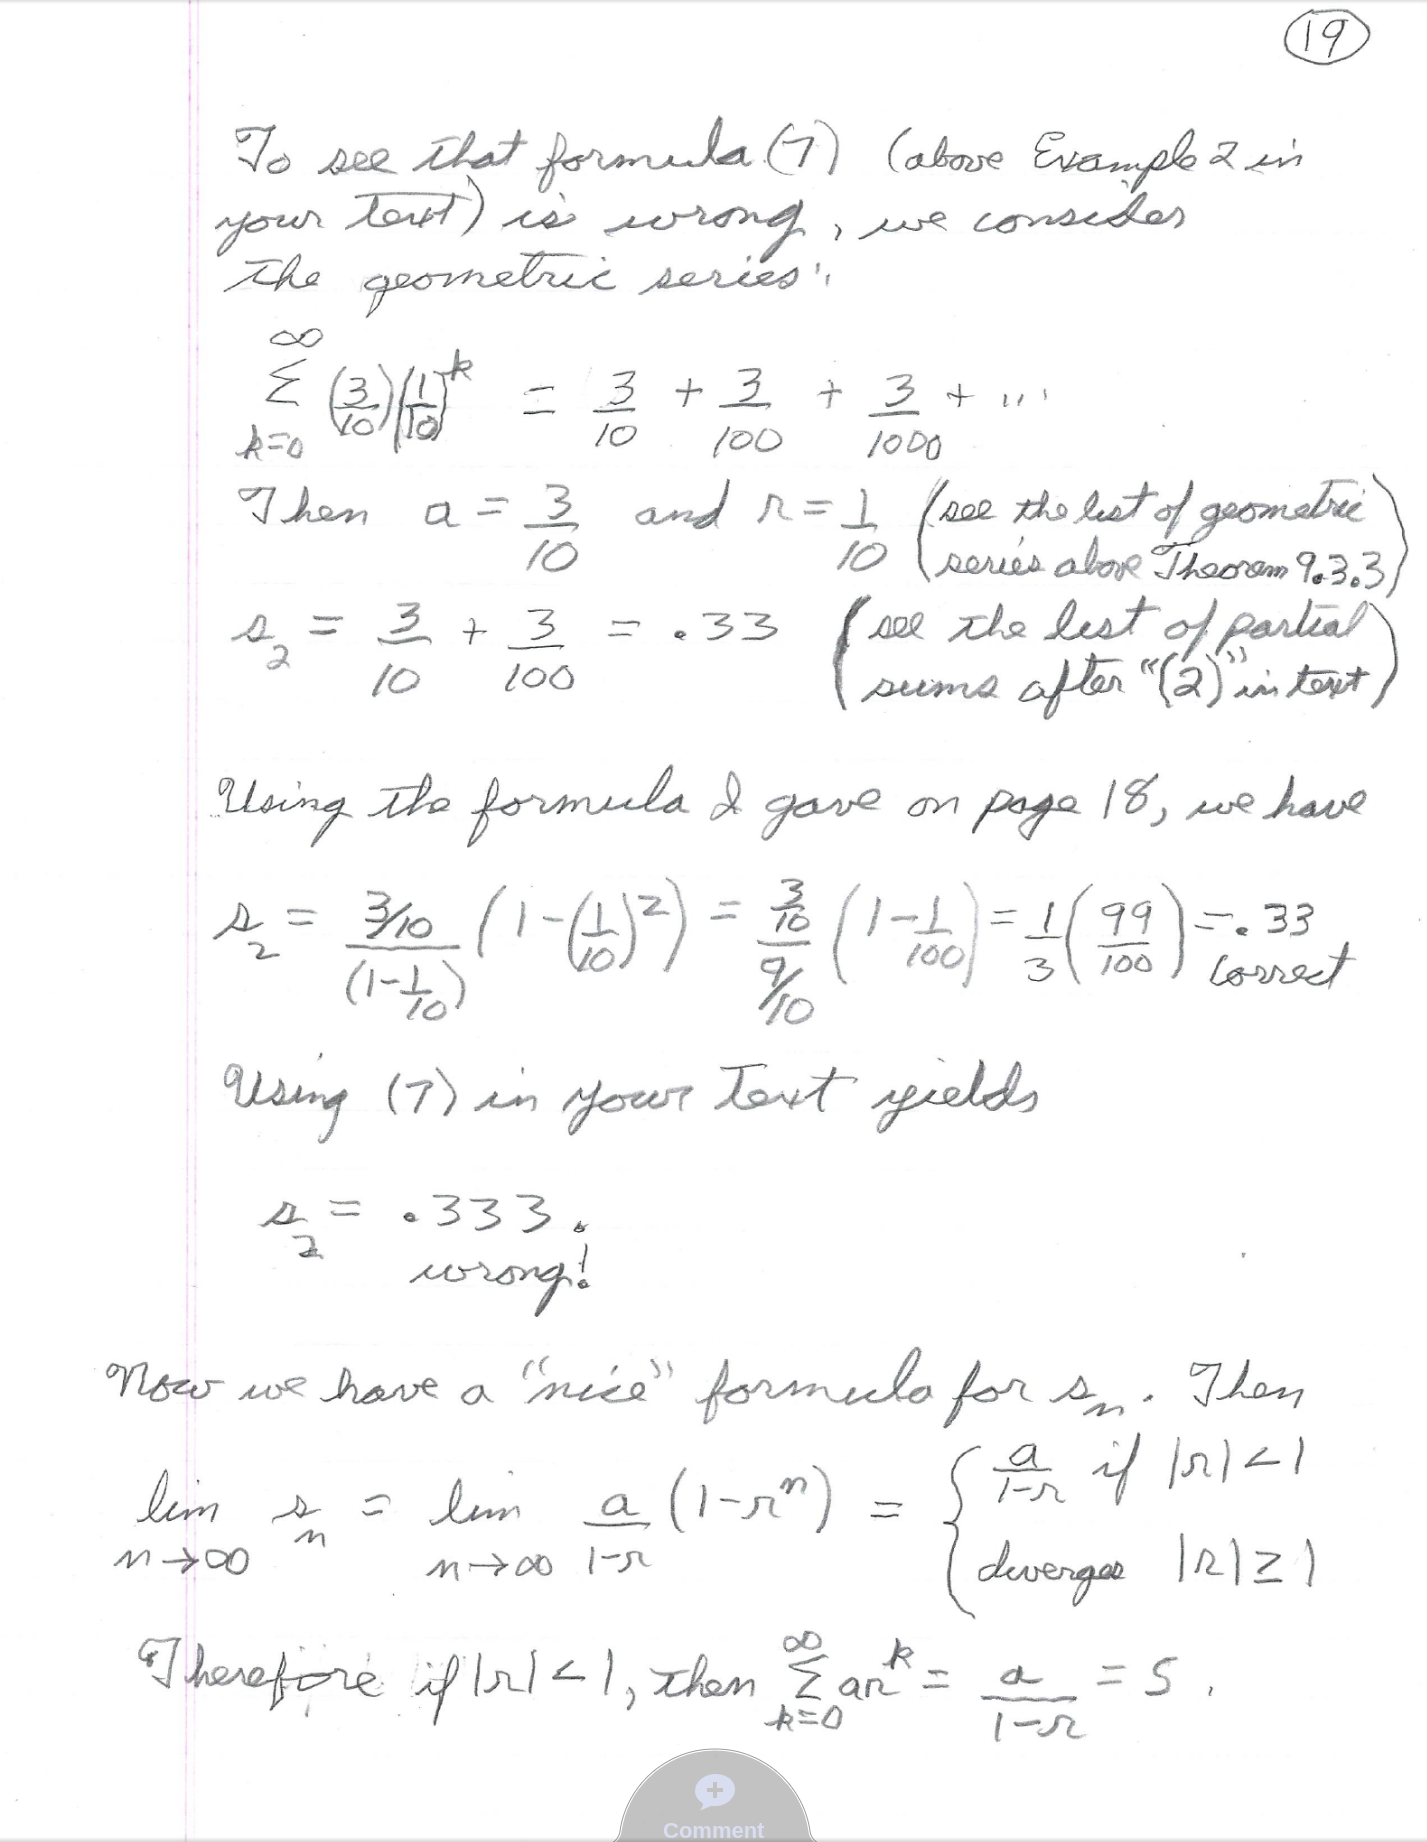 19
To see that formula (7) (above Example 2 in
your text) is wrong, we consider
the geometric series:
∞
Σ (3/10)(1/10)^k = 3/10 + 3/100 + 3/1000 + ...
k=0
Then a = 3/10 and r = 1/10 (see the list of geometric
series above Theorem 9.3.3)
s_2 = 3/10 + 3/100 = .33 (see the list of partial
sums after "(2)" in text)
Using the formula I gave on page 18, we have
s_2 = (3/10)/(1-1/10) (1-(1/10)^2) = (3/10)/(9/10) (1-1/100) = 1/3 (99/100) = .33
correct
Using (7) in your text yields
s_2 = .333.
wrong!
Now we have a "nice" formula for s_n. Then
lim s_n = lim a/(1-r) (1-r^n) = { a/(1-r) if |r| < 1
n→∞ n→∞ diverges |r| ≥ 1
Therefore if |r| < 1, then Σ_{k=0}^∞ ar^k = a/(1-r) = S.
Comment